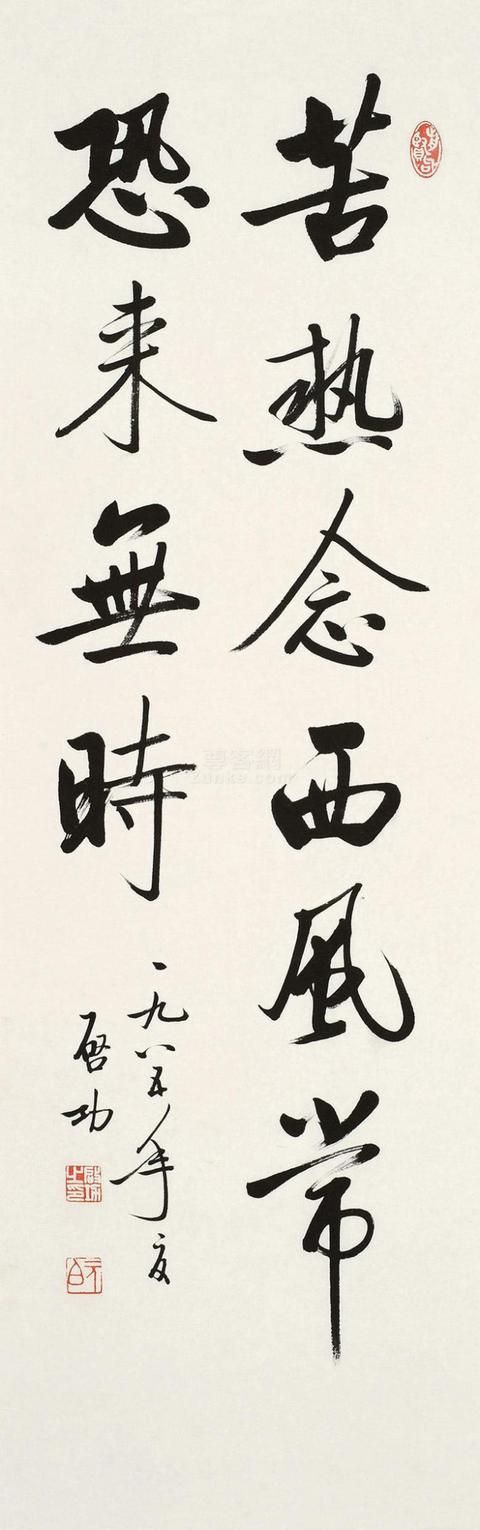 苦熱念西風常
恐来無時
一九八五年夏
啓功
啟功之印
元白
尊客網
zunke.com